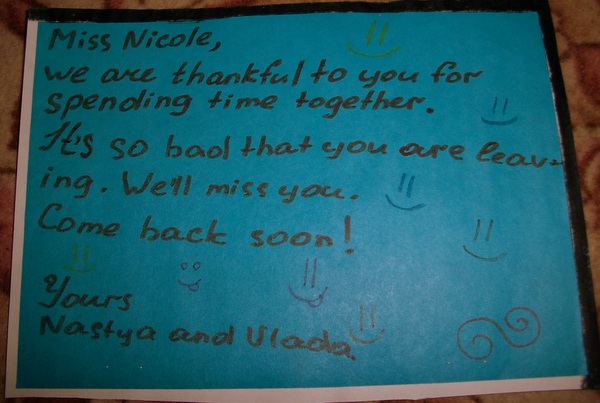 Miss Nicole,
we are thankful to you for
spending time together.
It's so bad that you are leav-
ing. We'll miss you.
Come back soon!
Yours
Nastya and Vlada.